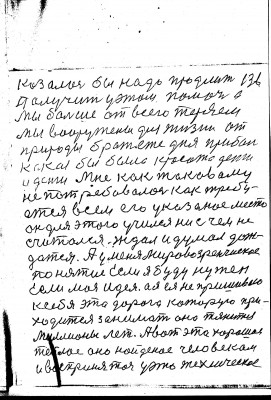 казалося бы надо продлить 136
Получит утом помоч а
мы больше от всего теряем
мы вооружены для жизни от
природы братете для прибол
какая бы была красота денги
и денги мне как таковому
не потребовалося как требу-
ется всем его указаное место
он для этого учился нисчем не
считался. ждал и думал дож-
датся. А у меня мировоззренческое
понятие если я буду нужен
если моя идея. а я я не пришиваю
к себя эта дорога которую при-
ходится занимать она тянится
миллионы лет. А вот эта хорошая
теплое оно найденое человекам
и воспринятая ужо техническое